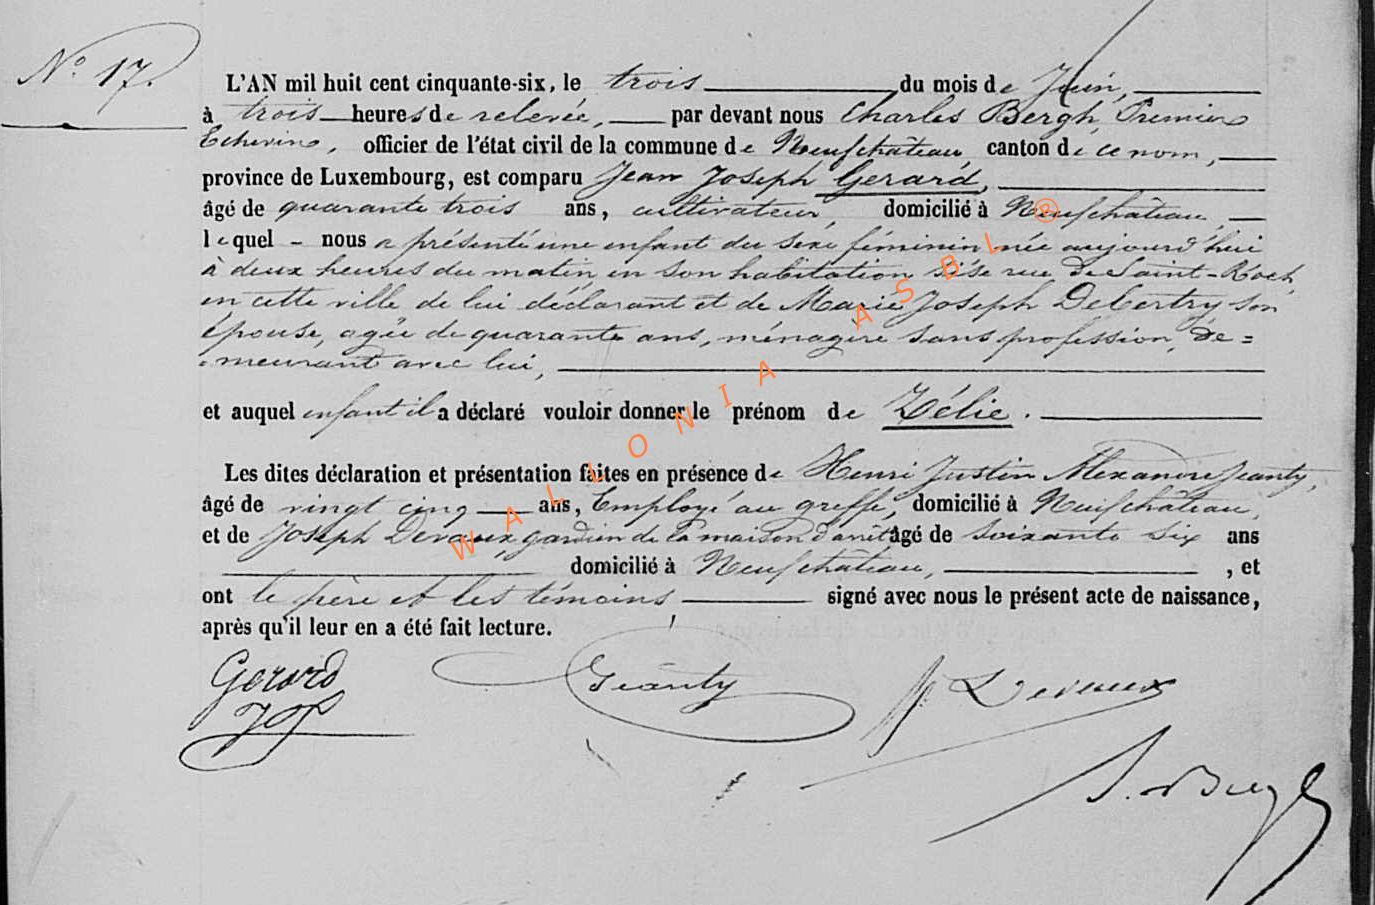 N° 17.
L'AN mil huit cent cinquante-six, le trois du mois de Juin,
à trois heures de relevée, par devant nous Charles Bergh, Premier
Echevin, officier de l'état civil de la commune de Neufchâteau, canton de ce nom,
province de Luxembourg, est comparu Jean Joseph Gerard,
âgé de quarante trois ans, cultivateur, domicilié à Neufchâteau,
lequel nous a présenté une enfant du sexe féminin née aujourd'hui
à deux heures du matin, en son habitation sise rue de Saint-Roch,
en cette ville de lui déclarant et de Marie Joseph Decertry, son
épouse, agée de quarante ans, ménagère sans profession, de=
=meurant avec lui,
et auquel enfant il a déclaré vouloir donner le prénom de Zélie.
Les dites déclaration et présentation faites en présence de Henri Justin Alexandre Jeanty,
âgé de vingt cinq ans, Employé au greffe, domicilié à Neufchâteau,
et de Joseph Devaux, gardien de la maison d'arrêt âgé de soixante six ans
domicilié à Neufchâteau, , et
ont le père et les témoins signé avec nous le présent acte de naissance,
après qu'il leur en a été fait lecture.
Gerard Jeanty Devaux
JJ
WALLONIA ASBL ®